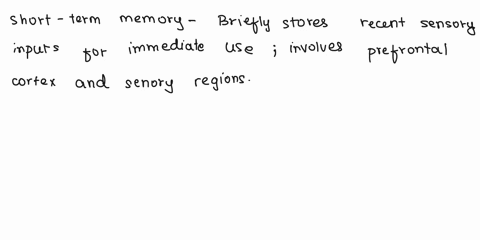 short-term memory - Briefly stores recent sensory
inputs for immediate use ; involves prefrontal
cortex and senory regions.